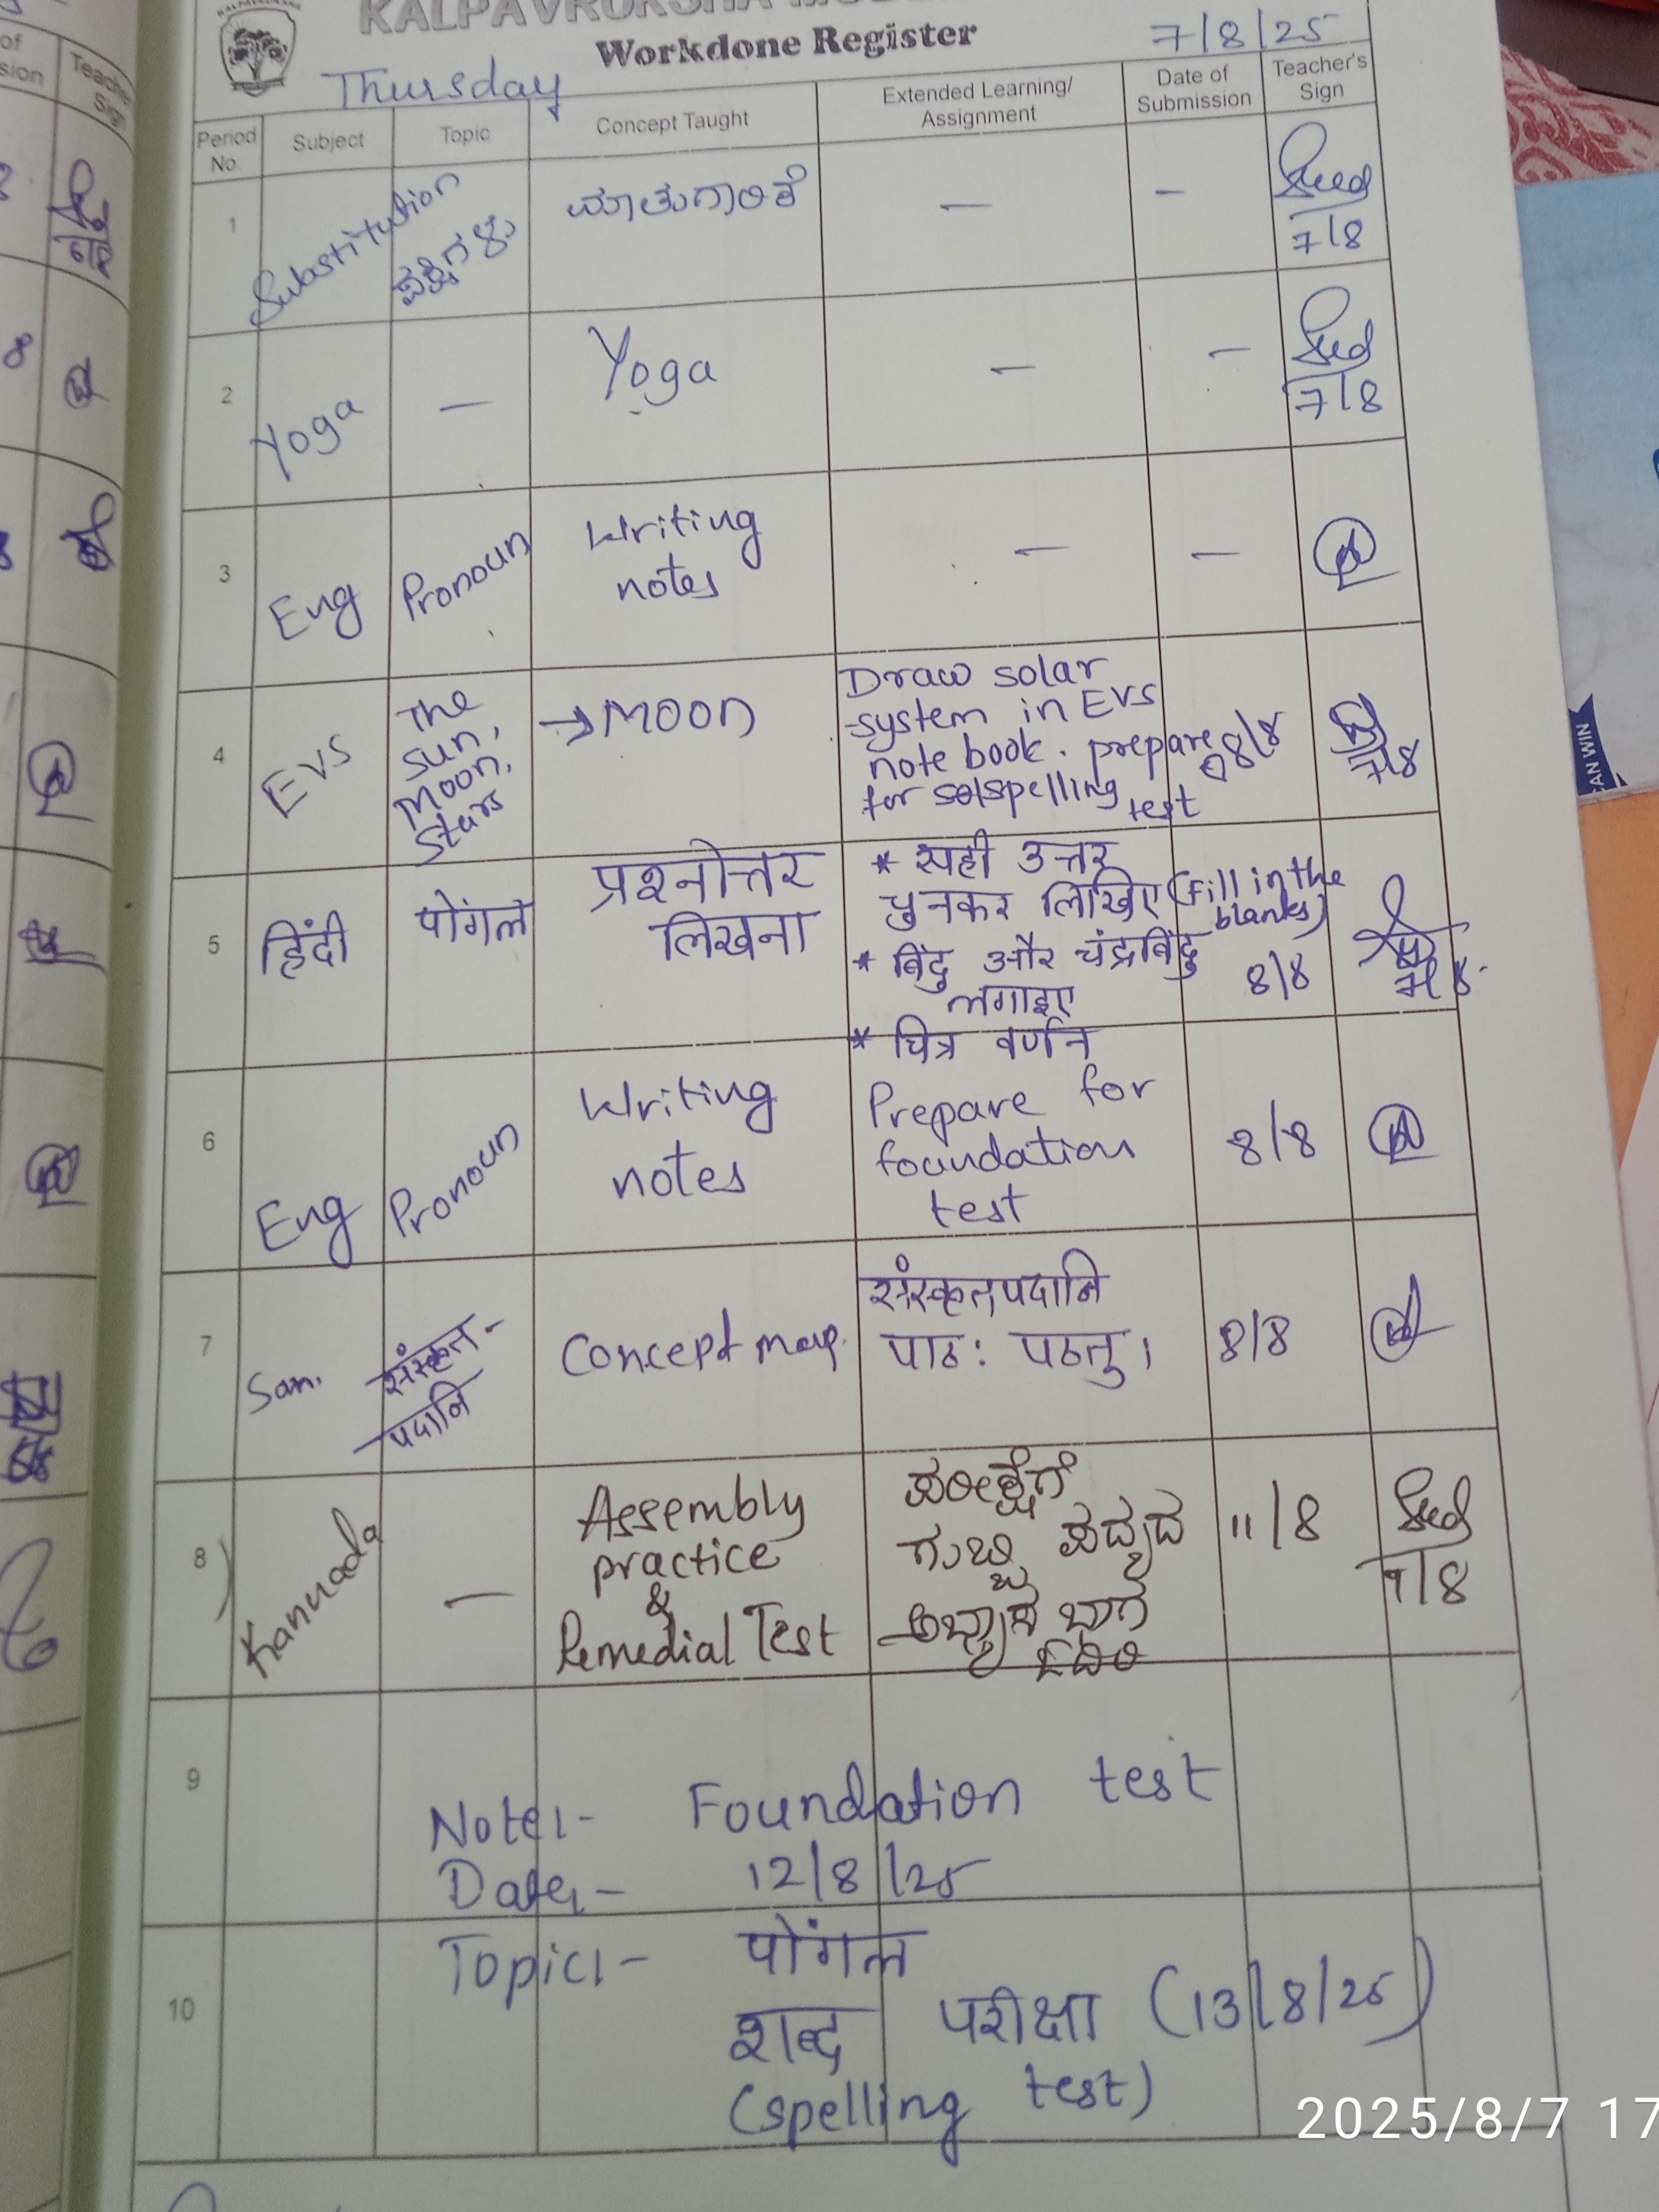 KALPAVRUKSHA
Workdone Register
7/8/25
Thursday
Period No. Subject Topic Concept Taught Extended Learning/ Assignment Date of Submission Teacher's Sign
1 Substitution ಪಕ್ಷಿಗಳು ಮಾತುಗಾರಿಕೆ — —
7/8
2 Yoga — Yoga — —
7/8
3 Eng Pronoun Writing
notes — —
4 EVS The
sun,
Moon,
Stars
→ MOON
Draw solar
system in EVS
note book. prepare
for spelling
test
8/8
7/8
5 हिंदी पोंगल प्रश्नोत्तर
लिखना
* सही उत्तर
चुनकर लिखिए (Fill in the
blanks)
* बिंदु और चंद्रबिंदु
लगाइए
* चित्र वर्णन
8/8
6 Eng Pronoun Writing
notes
Prepare for
foundation
test
8/8
7 San. संस्कृत-
पदानि
Concept map.
संस्कृतपदानि
पाठः पठतु।
8/8
8 Kannada —
Assembly
practice
&
Remedial Test
ಪರೀಕ್ಷೆಗೆ
ಗುಬ್ಬಿ ಪದ್ಯದ
ಅಭ್ಯಾಸ ಭಾಗ
11/8
7/8
9
Note:-  Foundation test
Date:-  12/8/25
10
Topic:-  पोंगल
शब्द परीक्षा (13/8/25)
(spelling test)
2025/8/7 17